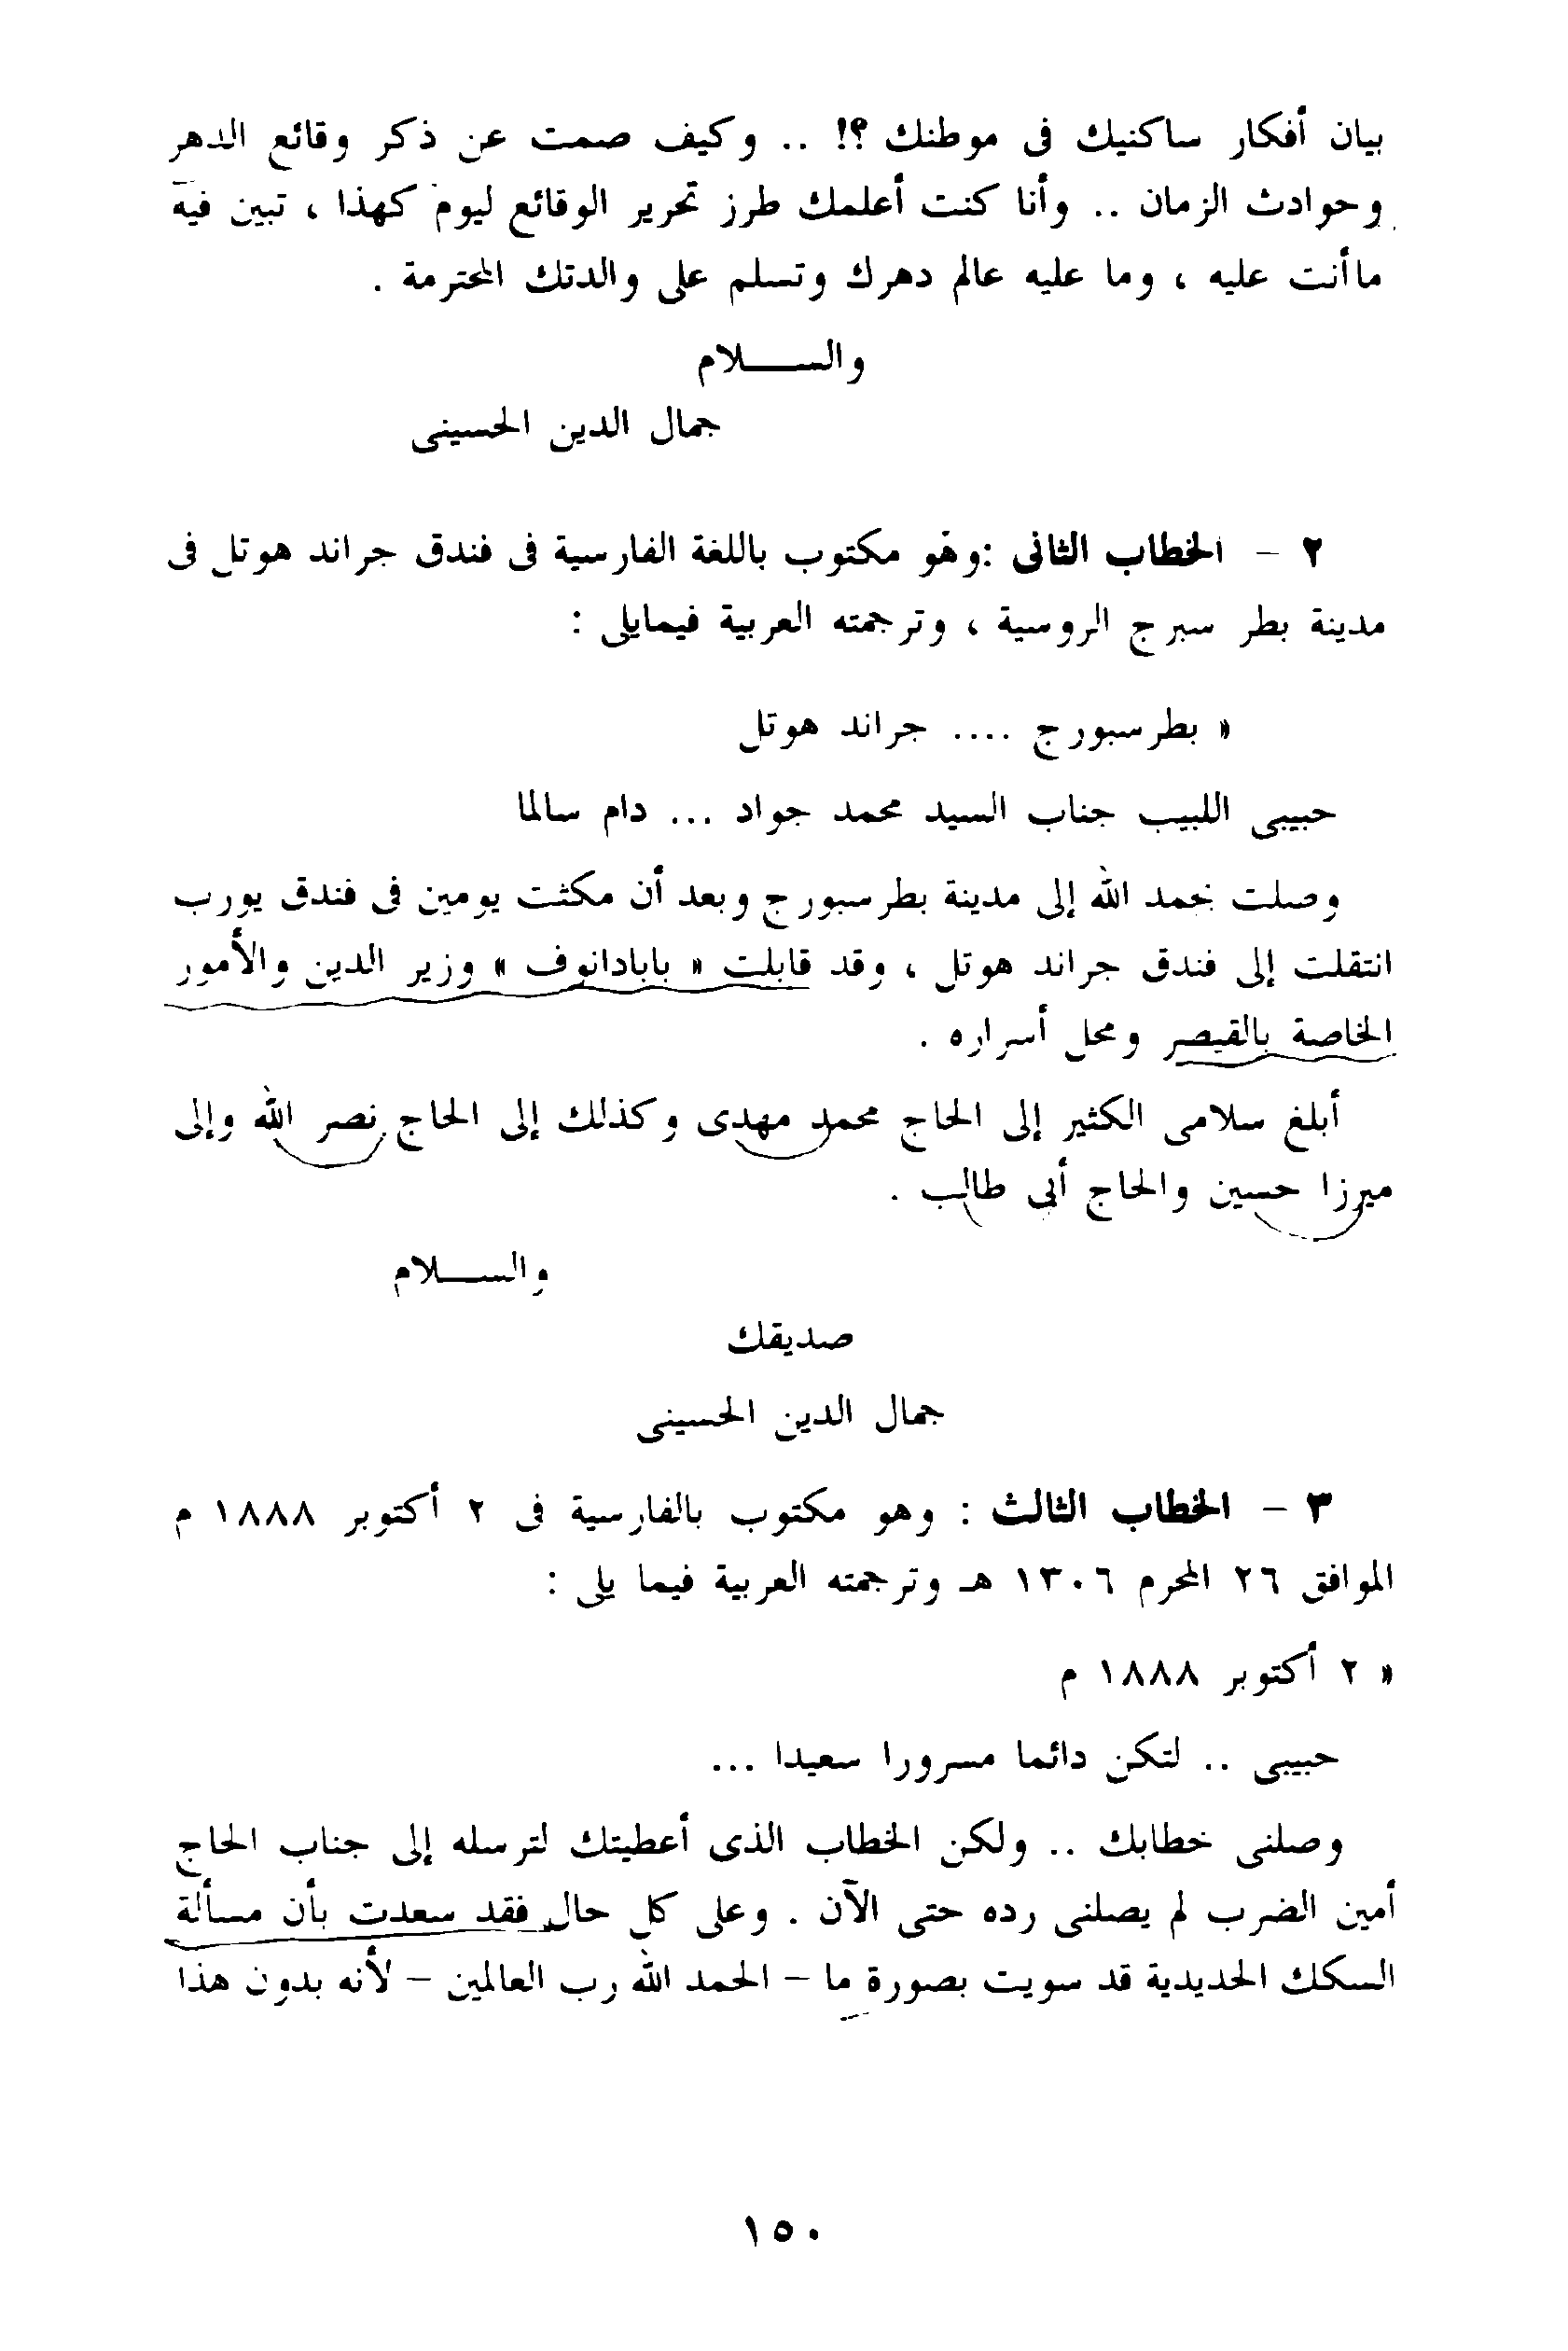 بيان أفكار ساكنيك فى موطنك ؟! .. وكيف صمت عن ذكر وقائع الدهر
وحوادث الزمان .. وأنا كنت أعلمك طرز تحرير الوقائع ليوم كهذا ، تبين فيه
ماأنت عليه ، وما عليه عالم دهرك وتسلم على والدتك المحترمة .
والســـلام
جمال الدين الحسينى
٢ – الخطاب الثانى :وهو مكتوب باللغة الفارسية فى فندق جراند هوتل فى
مدينة بطر سبرج الروسية ، وترجمته العربية فيمايلى :
« بطرسبورج .... جراند هوتل
حبيبى اللبيب جناب السيد محمد جواد ... دام سالما
وصلت بحمد الله إلى مدينة بطرسبورج وبعد أن مكثت يومين فى فندق يورب
انتقلت إلى فندق جراند هوتل ، وقد قابلت « بابادانوف » وزير الدين والأمور
الخاصة بالقيصر ومحل أسراره .
أبلغ سلامى الكثير إلى الحاج محمد مهدى وكذلك إلى الحاج نصر الله وإلى
ميرزا حسين والحاج أبى طالب .
والســـلام
صديقك
جمال الدين الحسينى
٣ – الخطاب الثالث : وهو مكتوب بالفارسية فى ٢ أكتوبر ١٨٨٨ م
الموافق ٢٦ المحرم ١٣٠٦ هـ وترجمته العربية فيما يلى :
« ٢ أكتوبر ١٨٨٨ م
حبيبى .. لتكن دائما مسرورا سعيدا ...
وصلنى خطابك .. ولكن الخطاب الذى أعطيتك لترسله إلى جناب الحاج
أمين الضرب لم يصلنى رده حتى الآن . وعلى كل حال فقد سعدت بأن مسألة
السكك الحديدية قد سويت بصورة ما – الحمد الله رب العالمين – لأنه بدون هذا
١٥٠